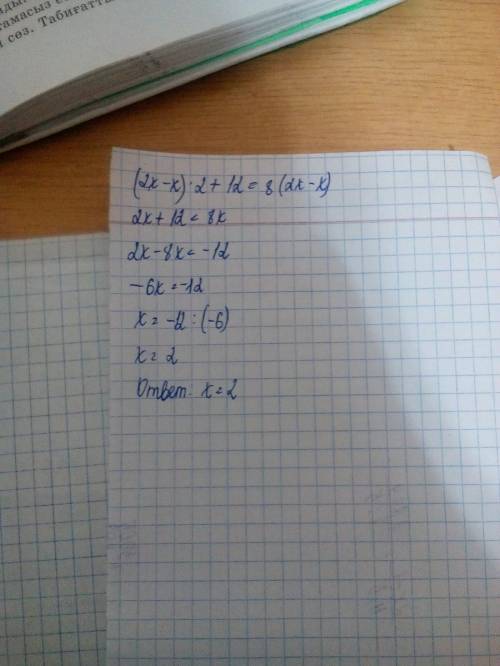 тамасыз
сөз. Табиғатта
(2x-x)·2+12=8(2x-x)
2x+12=8x
2x-8x=-12
-6x=-12
x=-12:(-6)
x=2
Ответ: x=2